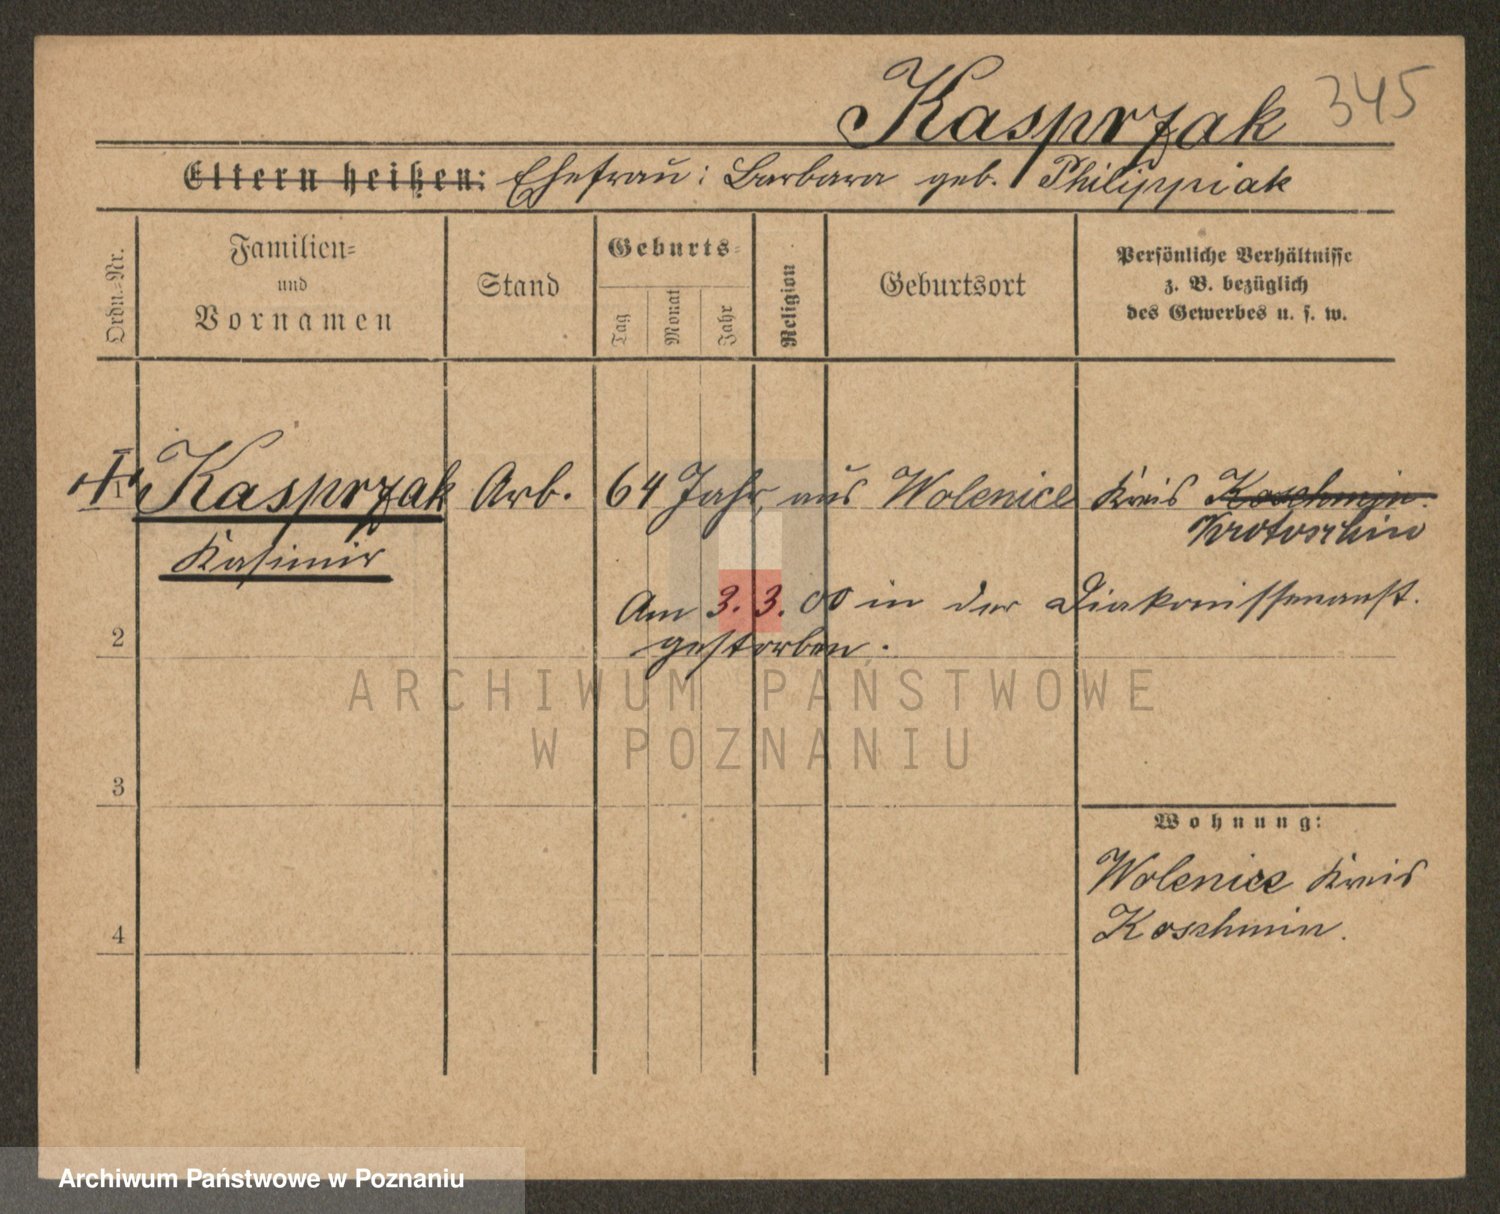 Kasprzak 345
Eltern heißen: Ehefrau: Barbara geb. Philippiak
Ordn.-Nr.
Familien-
und
Vornamen
Stand
Geburts-
Tag
Monat
Jahr
Religion
Geburtsort
Persönliche Verhältnisse
z. B. bezüglich
des Gewerbes u. s. w.
1 Kasprzak Arb. 64 Jahr, aus Wolenice Kreis Koschmin.
Krotoschin
Kasimir
Am 3. 3. 00 in der Diakonissenanst.
2 gestorben.
ARCHIWUM PAŃSTWOWE
W POZNANIU
3
Wohnung:
Wolenice Kreis
4 Koschmin.
Archiwum Państwowe w Poznaniu